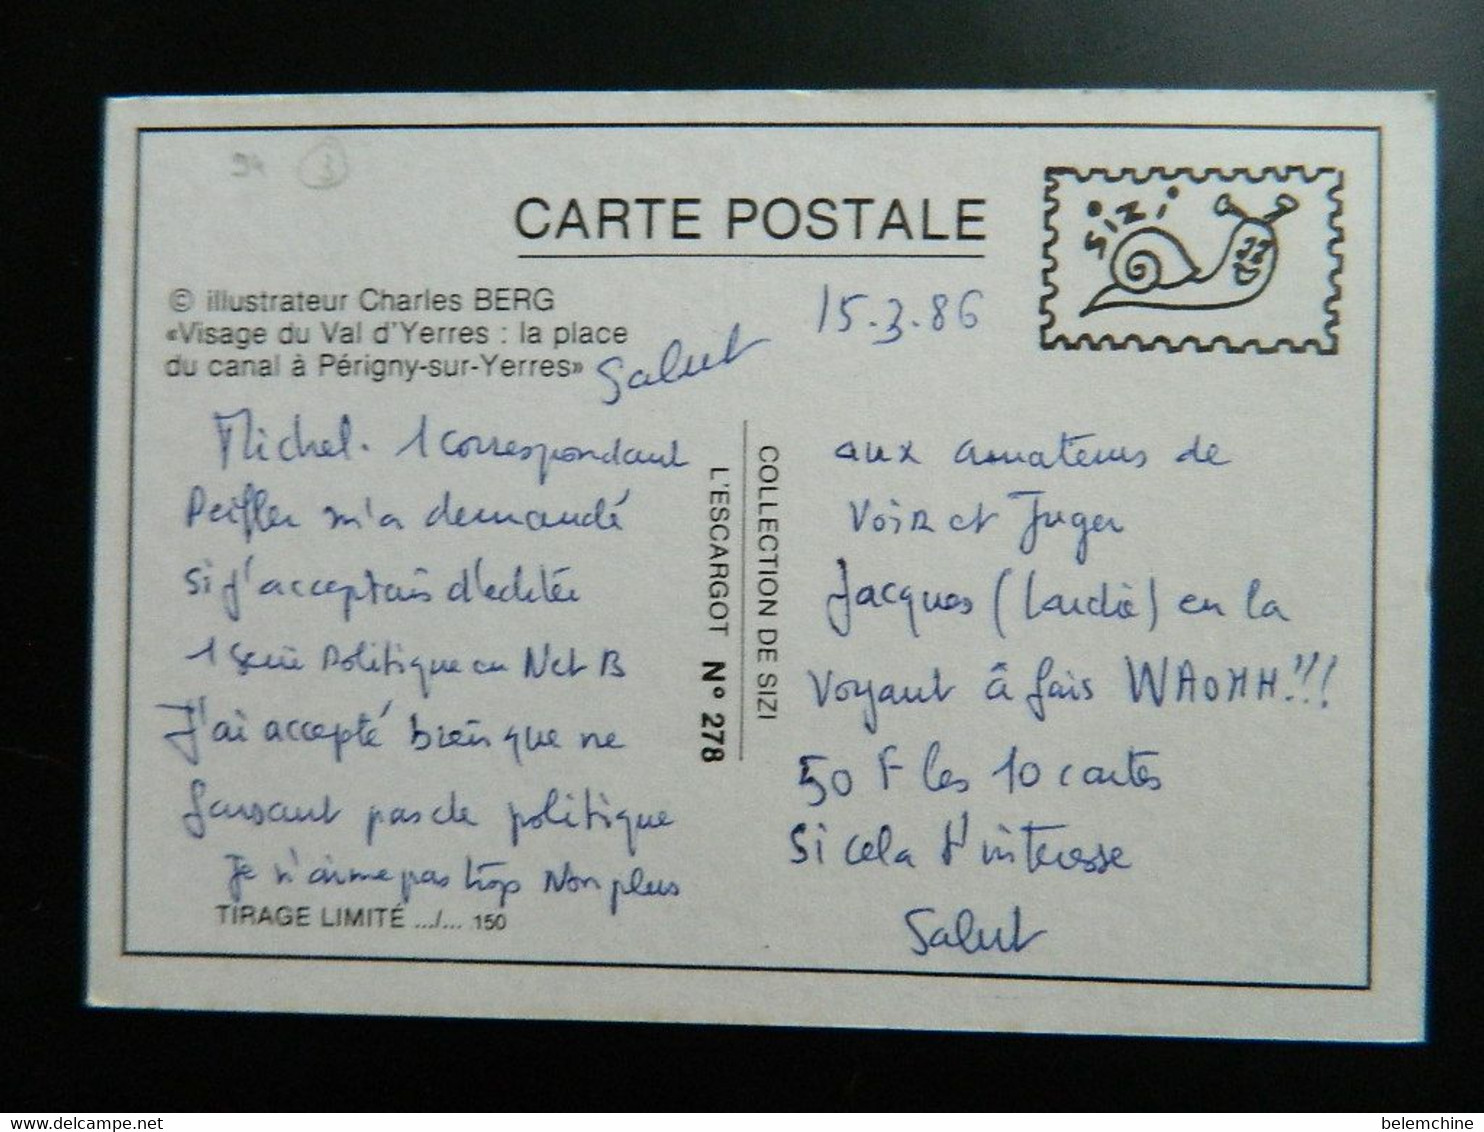 94 3
CARTE POSTALE
SIZI
© illustrateur Charles BERG
«Visage du Val d'Yerres : la place
du canal à Périgny-sur-Yerres»
15.3.86
Salut
Michel. 1 correspondant
m'a demandé
si j'acceptais d'éditer
1 série Politique en N et B
J'ai accepté bien que ne
faisant pas de politique
Je n'aime pas trop Non plus
TIRAGE LIMITÉ .../... 150
COLLECTION DE SIZI
L'ESCARGOT N° 278
aux amateurs de
Voir et Juger
Jacques (Lardie) en la
Voyant à fais WAOHH!!!
50 F les 10 cartes
Si cela t'interesse
Salut
belemchine